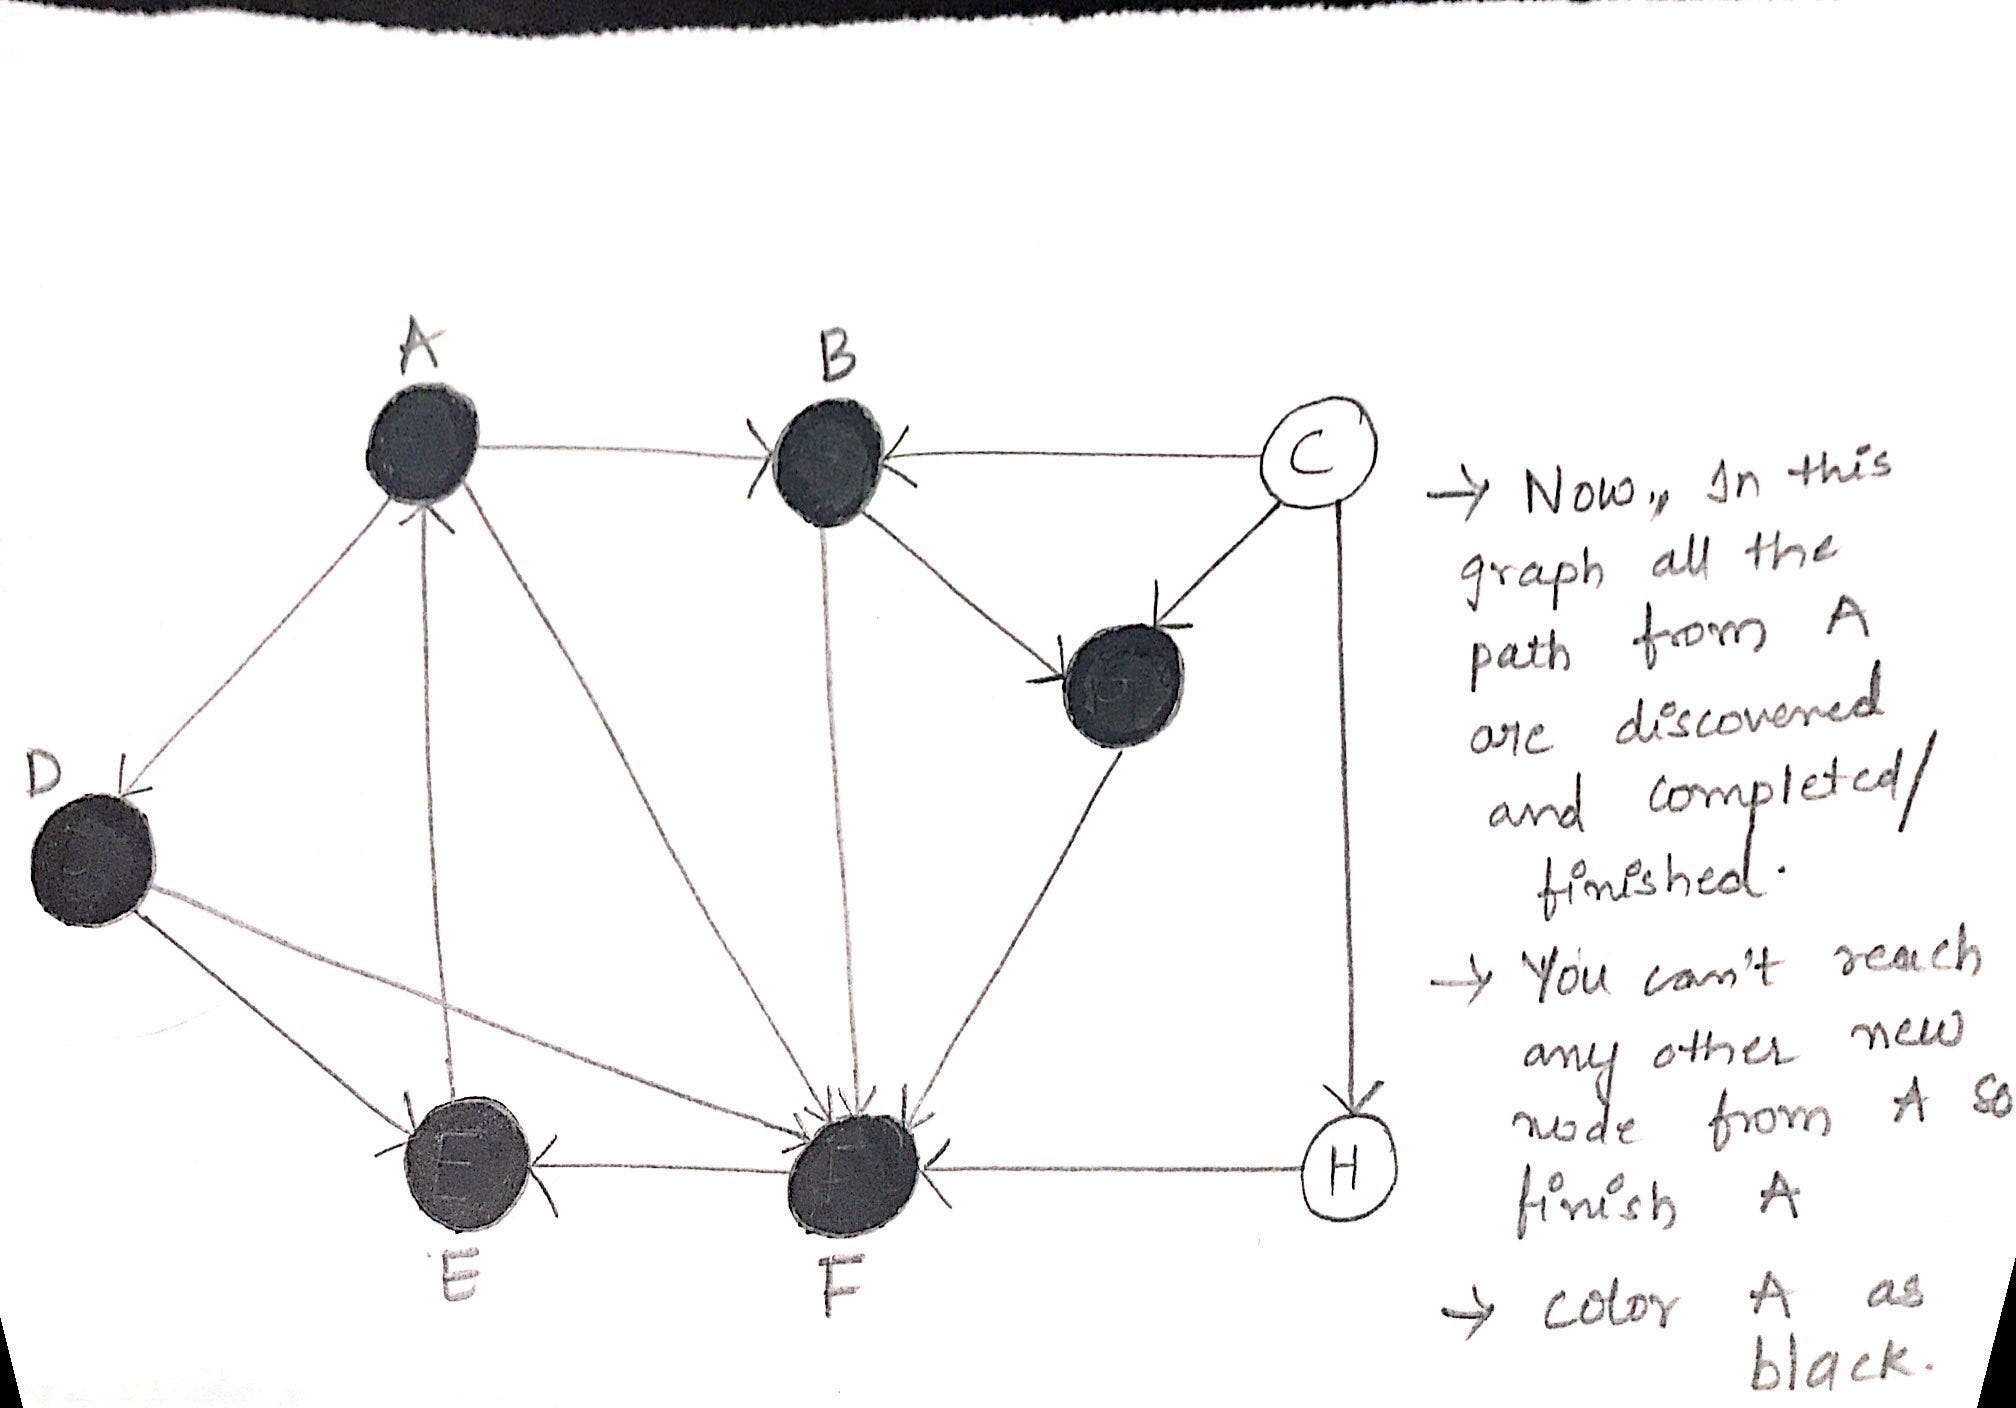 A
B
C
D
E
E
F
F
H
→ Now,, In this
graph all the
path from A
are discovered
and completed/
finished.
→ You can't reach
any other new
node from A so
finish A
→ color A as
black.